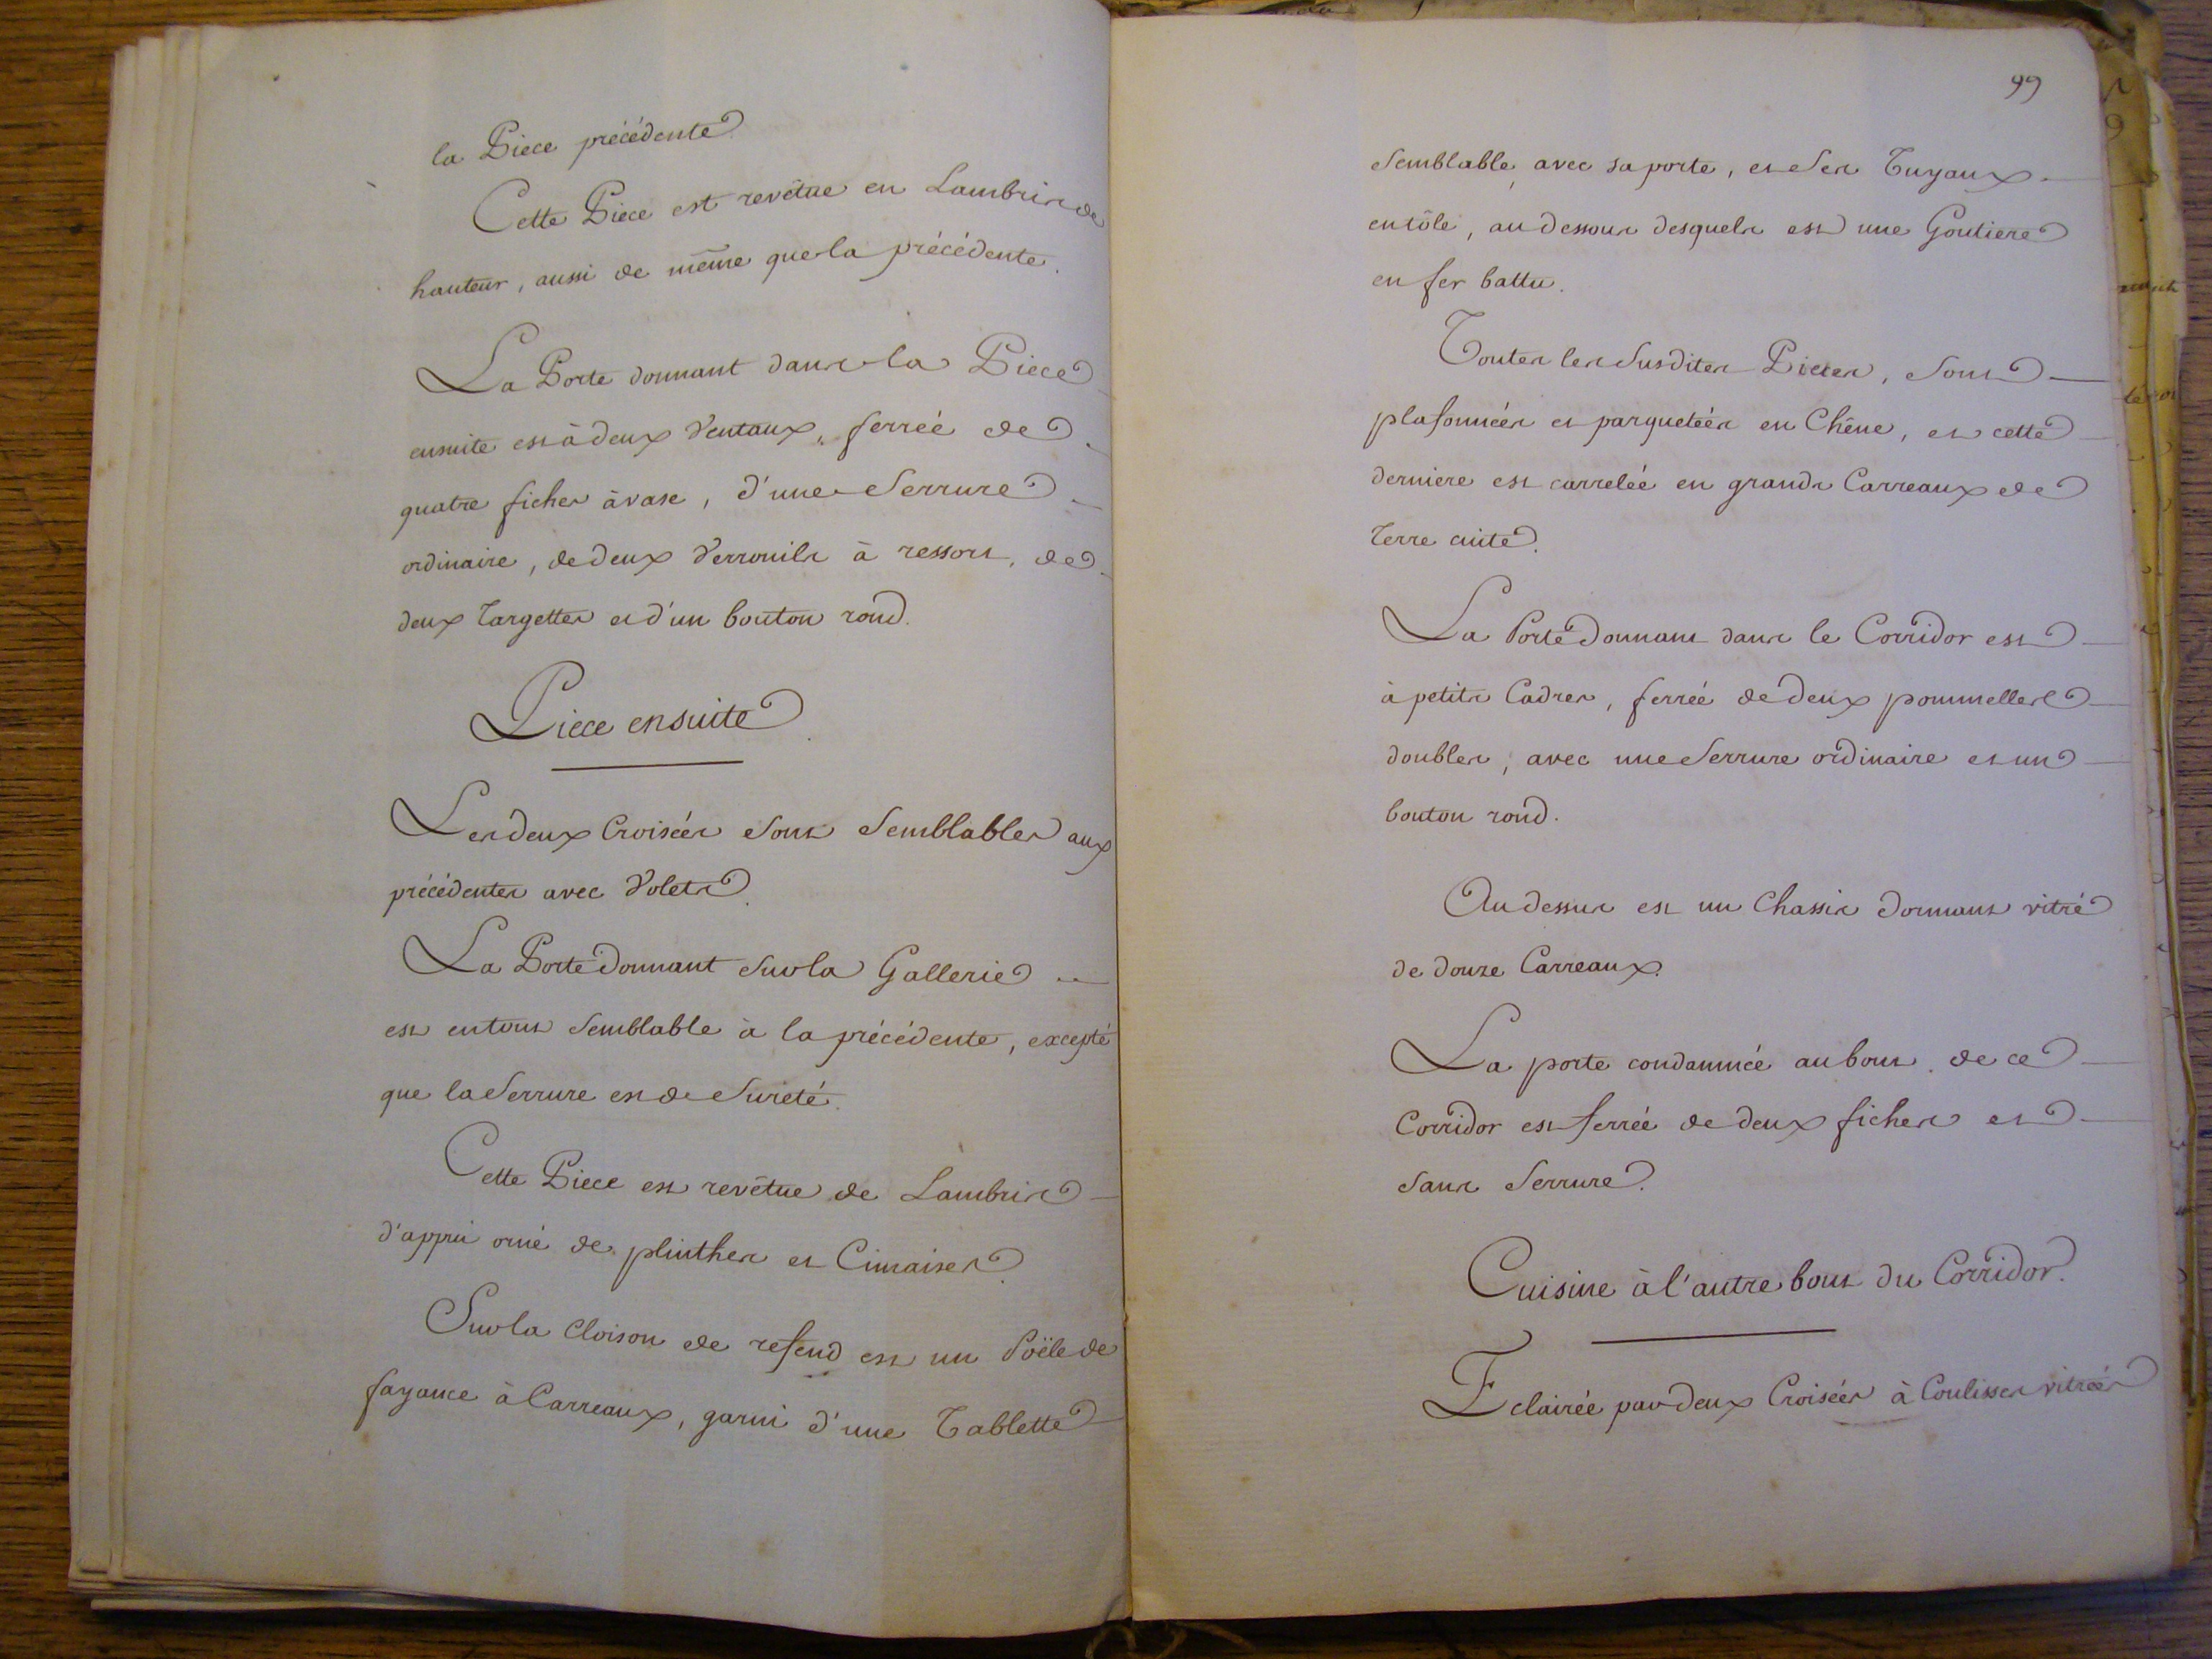 la Piece précédente
Cette Piece est revêtue en Lambris de
hauteur, aussi de même que la précédente.
La Porte donnant dans la Piece
ensuite est à deux Ventaux, ferrée de
quatre fiches à vase, d'une Serrure
ordinaire, de deux Verrouils à ressort, de
deux Targettes et d'un bouton rond.
Piece ensuite
Les deux Croisées sont semblables aux
précédentes avec Volets.
La Porte donnant sur la Gallerie
est en tout semblable à la précédente, excepté
que la Serrure est de Sureté.
Cette Piece est revêtue de Lambris
d'appui orné de plinthes et Cimaises.
Sur la Cloison de refend est un Poële de
fayance à Carreaux, garni d'une Tablette
99
semblable, avec sa porte, et ses Tuyaux
en tôle, au dessous desquels est une Goutiere
en fer battu.
Toutes les susdites Pieces, sont
plafonnées et parquetées en Chêne, et cette
derniere est carrelée en grands Carreaux de
Terre cuite.
La Porte donnant dans le Corridor est
à petits Cadres, ferrée de deux pommelles
doubles, avec une Serrure ordinaire et un
bouton rond.
Au dessus est un Chassis dormant vitré
de douze Carreaux.
La porte condamnée au bout de ce
Corridor est ferrée de deux fiches et
sans Serrure.
Cuisine à l'autre bout du Corridor.
Eclairée par deux Croisées à Coulisses vitrées